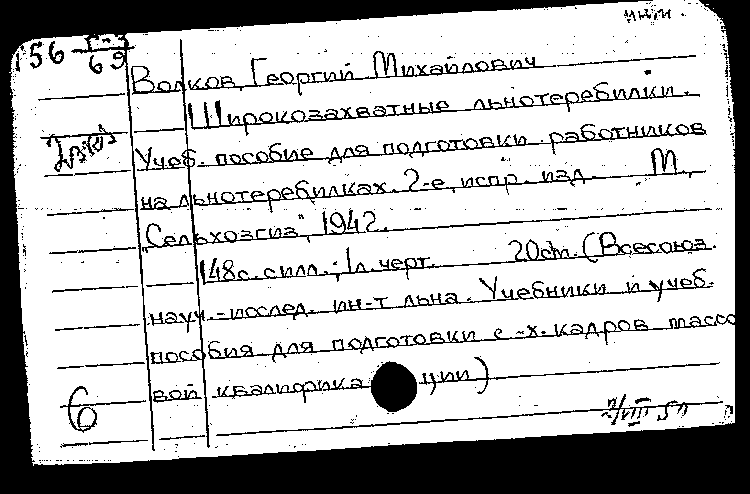 Волков, Георгий Михайлович
Широкозахватные льнотеребилки.
Учеб. пособие для подготовки работников
на льнотеребилках. 2-е, испр. изд. М.,
"Сельхозгиз", 1942.
148с. с илл.; 1л. черт. 20cm. (Всесоюз.
науч.-послед. ин-т льна. Учебники и учеб.
пособия для подготовки с-х. кадров массо
вой квалифика ции)
6